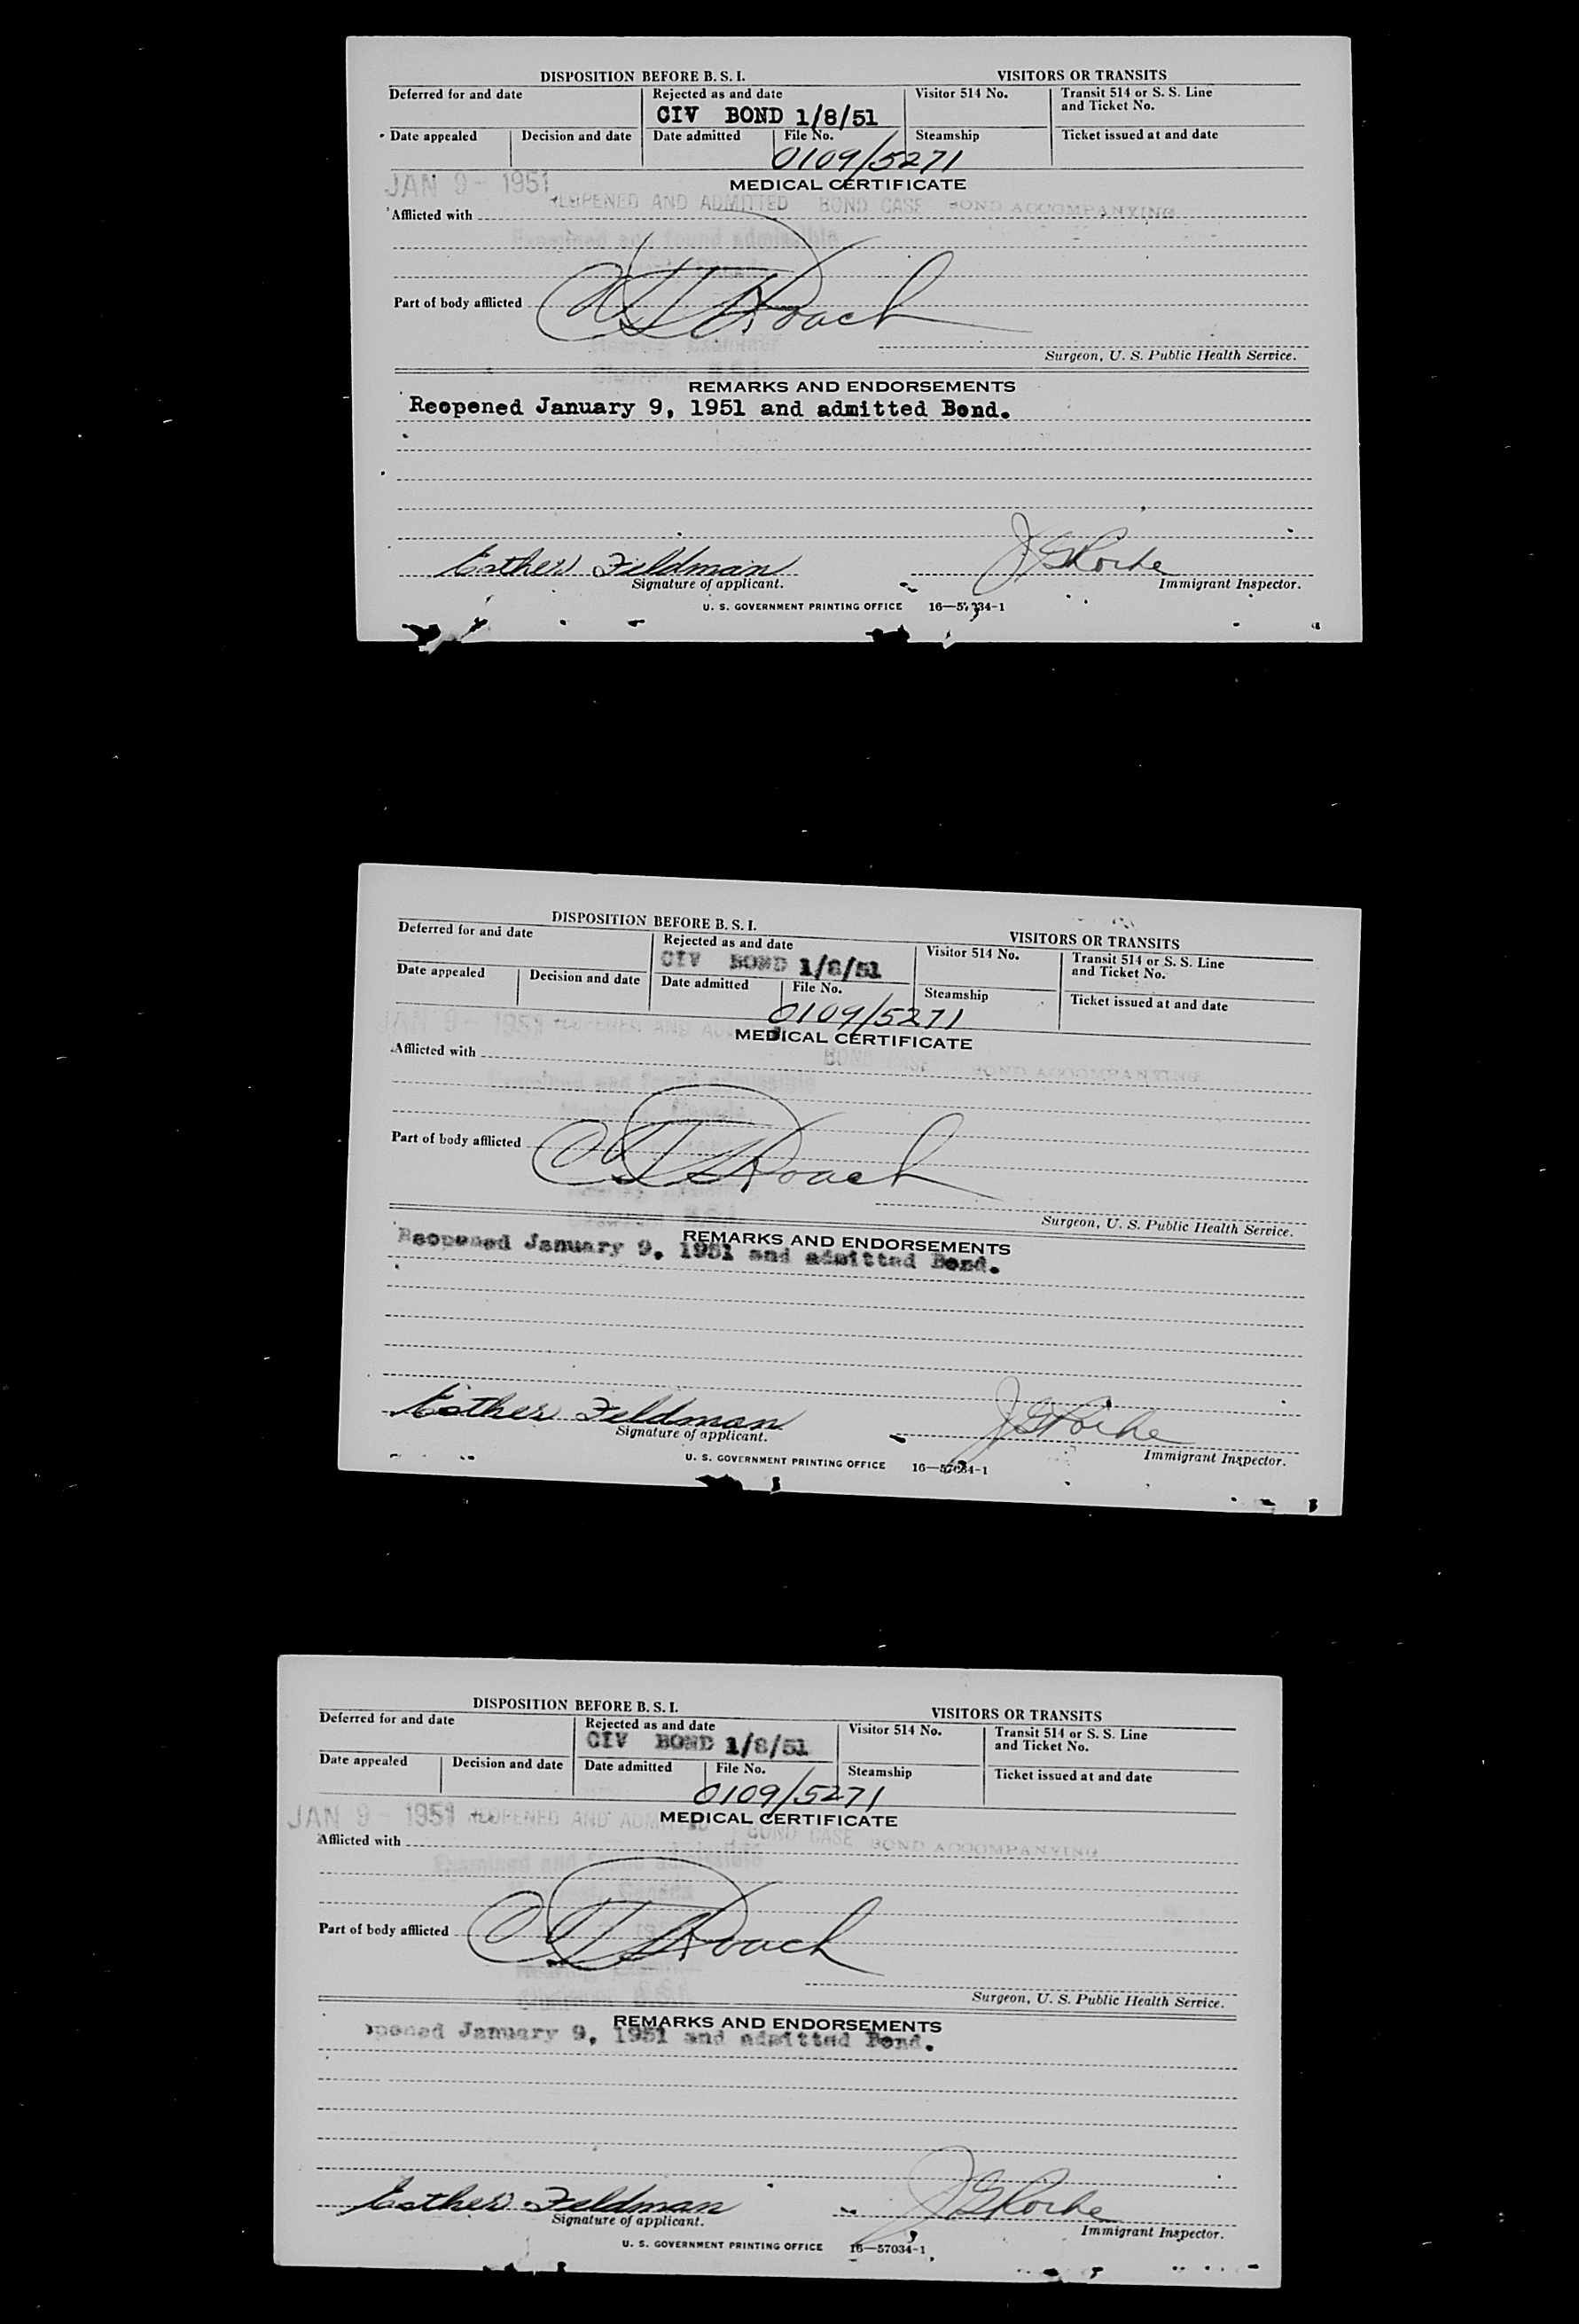 DISPOSITION BEFORE B. S. I.
VISITORS OR TRANSITS
Deferred for and date
Rejected as and date
Visitor 514 No.
Transit 514 or S. S. Line
and Ticket No.
CIV BOND 1/8/51
Date appealed
Decision and date
Date admitted
File No.
Steamship
Ticket issued at and date
0109/5271
JAN 9 - 1951
MEDICAL CERTIFICATE
REOPENED AND ADMITTED BOND CASE BOND ACCOMPANYING
Afflicted with
Examined and found admissible
Part of body afflicted
Roach
Hearing Examiner
Surgeon, U. S. Public Health Service.
REMARKS AND ENDORSEMENTS
Reopened January 9, 1951 and admitted Bond.
Esther Feldman
Signature of applicant.
Immigrant Inspector.
U. S. GOVERNMENT PRINTING OFFICE
DISPOSITION BEFORE B. S. I.
VISITORS OR TRANSITS
Deferred for and date
Rejected as and date
Visitor 514 No.
Transit 514 or S. S. Line
and Ticket No.
CIV BOND 1/8/51
Date appealed
Decision and date
Date admitted
File No.
Steamship
Ticket issued at and date
0109/5271
JAN 9 - 1951 REOPENED AND
MEDICAL CERTIFICATE
Afflicted with
BOND CASE BOND ACCOMPANYING
Examined and found admissible
Canada
Part of body afflicted
Roach
Surgeon, U. S. Public Health Service.
REMARKS AND ENDORSEMENTS
Reopened January 9, 1951 and admitted Bond.
Esther Feldman
Signature of applicant.
Immigrant Inspector.
U. S. GOVERNMENT PRINTING OFFICE
DISPOSITION BEFORE B. S. I.
VISITORS OR TRANSITS
Deferred for and date
Rejected as and date
Visitor 514 No.
Transit 514 or S. S. Line
and Ticket No.
CIV BOND 1/8/51
Date appealed
Decision and date
Date admitted
File No.
Steamship
Ticket issued at and date
0109/5271
JAN 9 - 1951 REOPENED AND ADMITTED
MEDICAL CERTIFICATE
BOND CASE BOND ACCOMPANYING
Afflicted with
Examined and found admissible
Canada
Part of body afflicted
Roach
Surgeon, U. S. Public Health Service.
REMARKS AND ENDORSEMENTS
pened January 9, 1951 and admitted Bond.
Esther Feldman
Signature of applicant.
Immigrant Inspector.
U. S. GOVERNMENT PRINTING OFFICE 16—57034-1